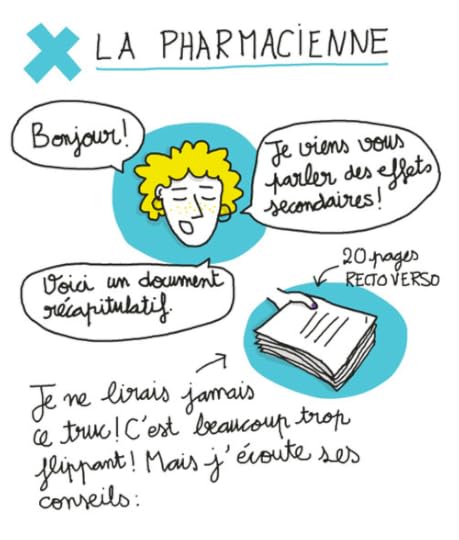 LA PHARMACIENNE
Bonjour!
Je viens vous
parler des effets
secondaires!
Voici un document
récapitulatif.
20 pages
RECTO VERSO
Je ne lirais jamais
ce truc! C'est beaucoup trop
flippant! Mais j'écoute ses
conseils: